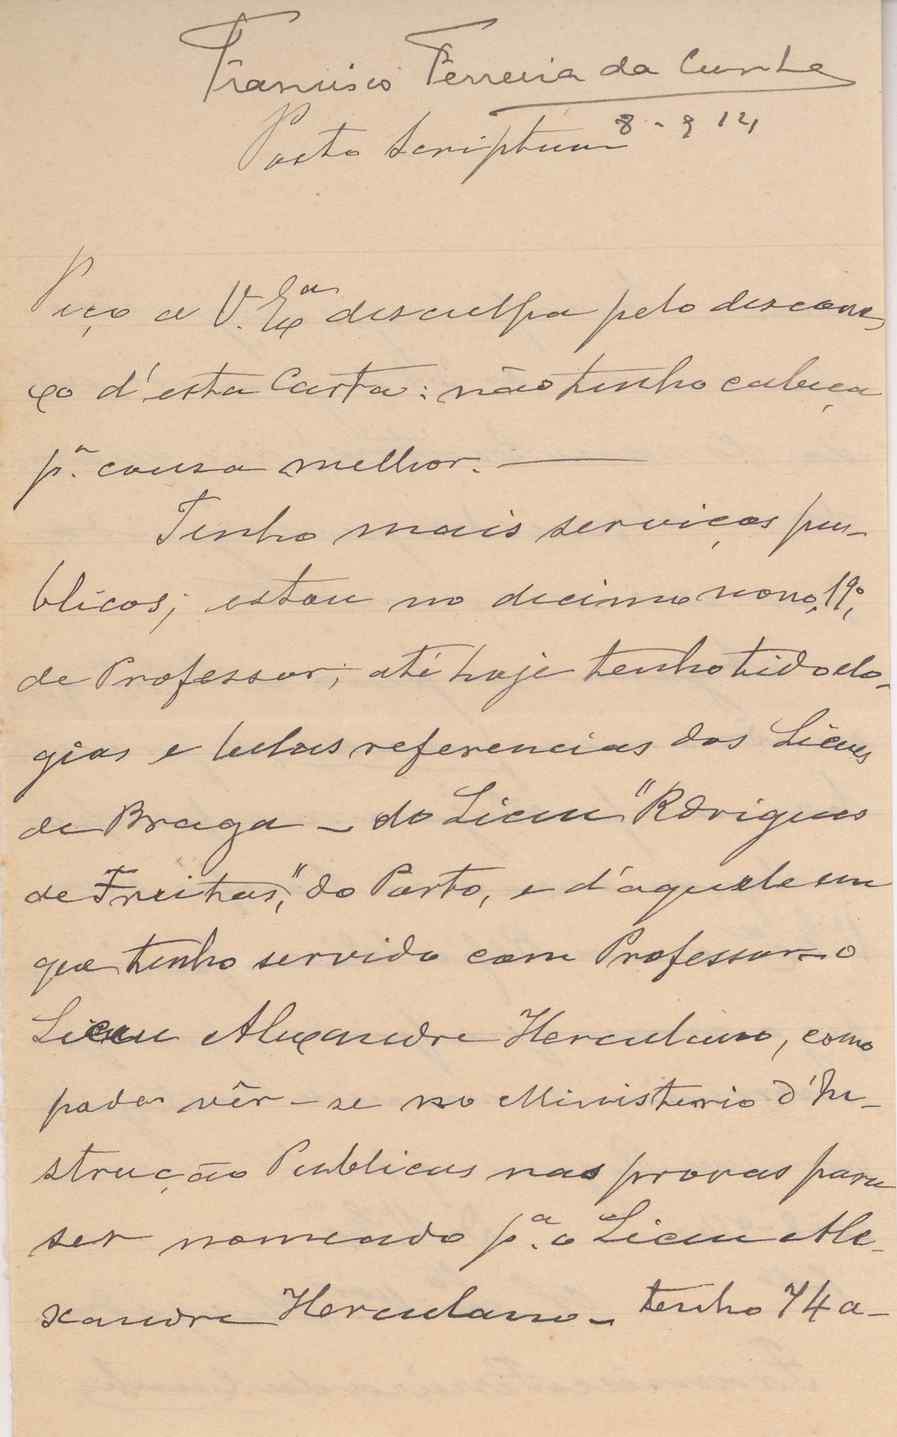 Francisco Ferreira da Cunha
Posto Scriptum 8-9 14
Peço a V. Exª desculpa pelo descone-
xo d'esta Carta: não tenho cabeça
pª. cousa melhor. —
Tenho mais serviços pu-
blicos; estou no decimo nono, 19º,
de Professor; até hoje tenho tido elo-
gios e bellas referencias dos Liceus
de Braga – do Liceu "Rodrigues
de Freitas", do Porto, e d'aquele em
que tenho servido com Professor – o
Liceu Alexandre Herculano, como
pode vêr-se no Ministerio d'In-
strução Publica nas provas para
ser nomeado pª. o Liceu Ale-
xandre Herculano – tenho 44 a-